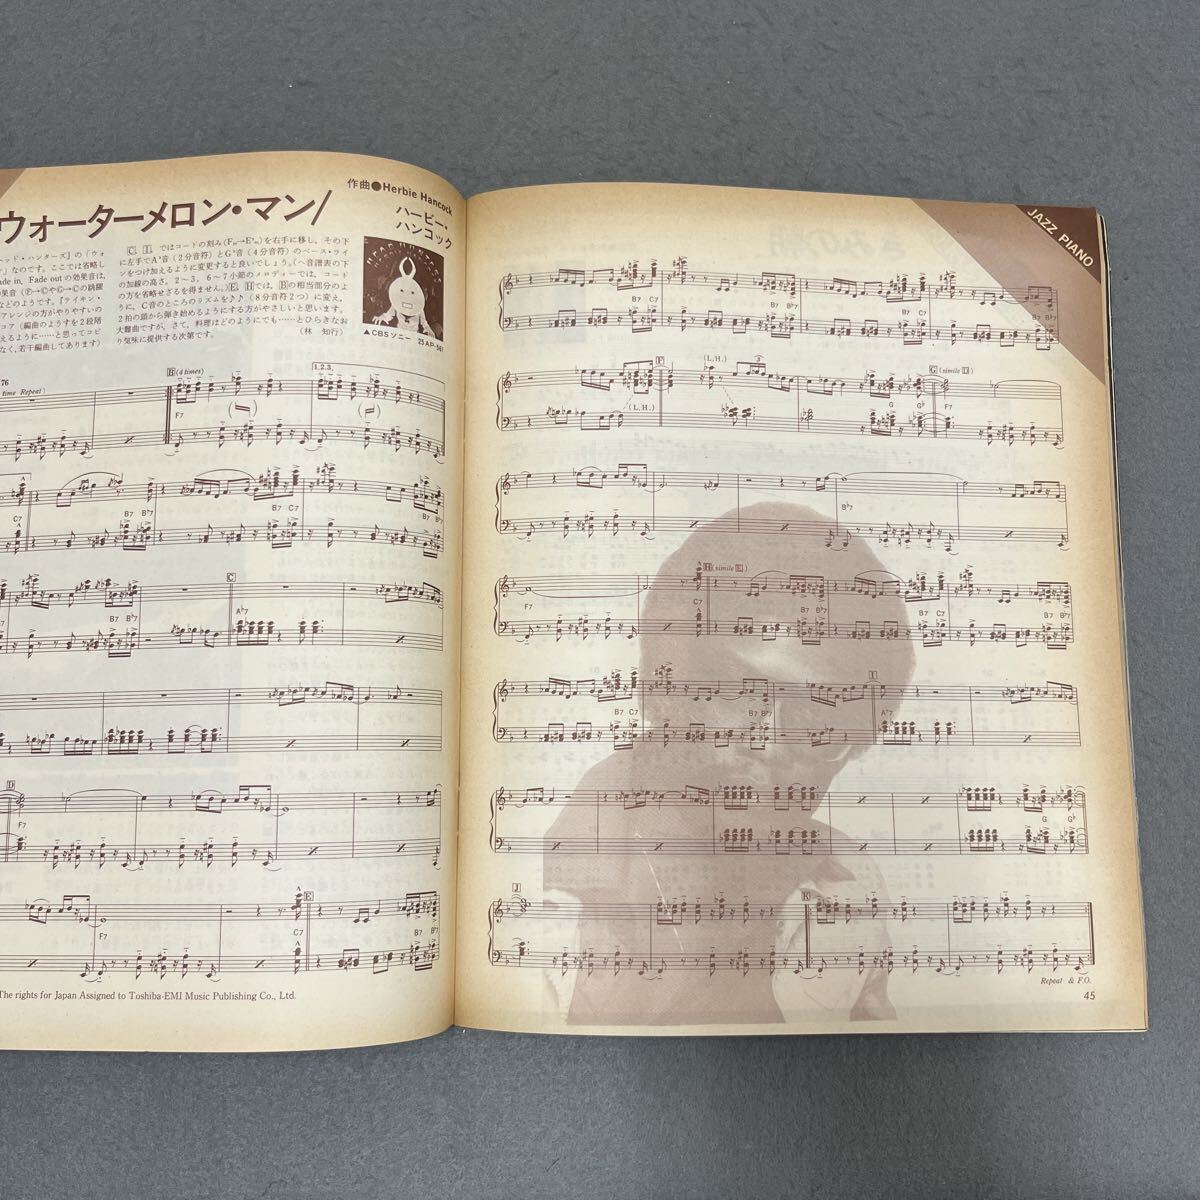 ウォーターメロン・マン/
作曲●Herbie Hancock
ハービー・
ハンコック
ヘッド・ハンターズ』の『ウォ
なのです。ここでは省略し
ade in, Fade out の効果音は、
C, I, ではコードの刻み
を右手に移し、その下
(2分音符)と
(4分音符)のベース・ライ
ンをつけ加えるように変更すると良いでしょう。(ヘ音譜表の下
の加線の高さ。2〜3, 6〜7小節のメロディーでは、コード
の方を省略せざるを得ません。)E, Hでは、Bの相当部分のよ
うに、C音のところのリズムを♪♪(8分音符2つ)に変え、
2拍の頭から弾き始めるようにする方がやさしいと思います。
大盤曲ですが、さて、料理はどのようにでも……とひらきなお
り気味に提供する次第です。
(林 知行)
などのようです。『テイキン・
アレンジの方がやりやすいの
コア(編曲のようすを2段階
えるように……と思ってコピ
なく、若干編曲してあります)
▲CBSソニー 25AP-561
JAZZ PIANO
76
time Repeat)
B (4 times)
1.2.3.
F7
C7
B7 B♭7
B7 C7
B7 B♭7
C7
B7 B♭7
C
A♭7
D
F7
F7
C7
E
B7 B♭7
The rights for Japan Assigned to Toshiba-EMI Music Publishing Co., Ltd.
B7 C7
B7 B♭7
F
(L.H.)
(L.H.)
3
G (simile D)
G G♭ F7
B♭7
F7
C7
H (simile E)
B7 B♭7
B7 C7
B7 C7
B7 B♭7
I
A♭7
G G♭
J
K
Repeat & F.O.
45